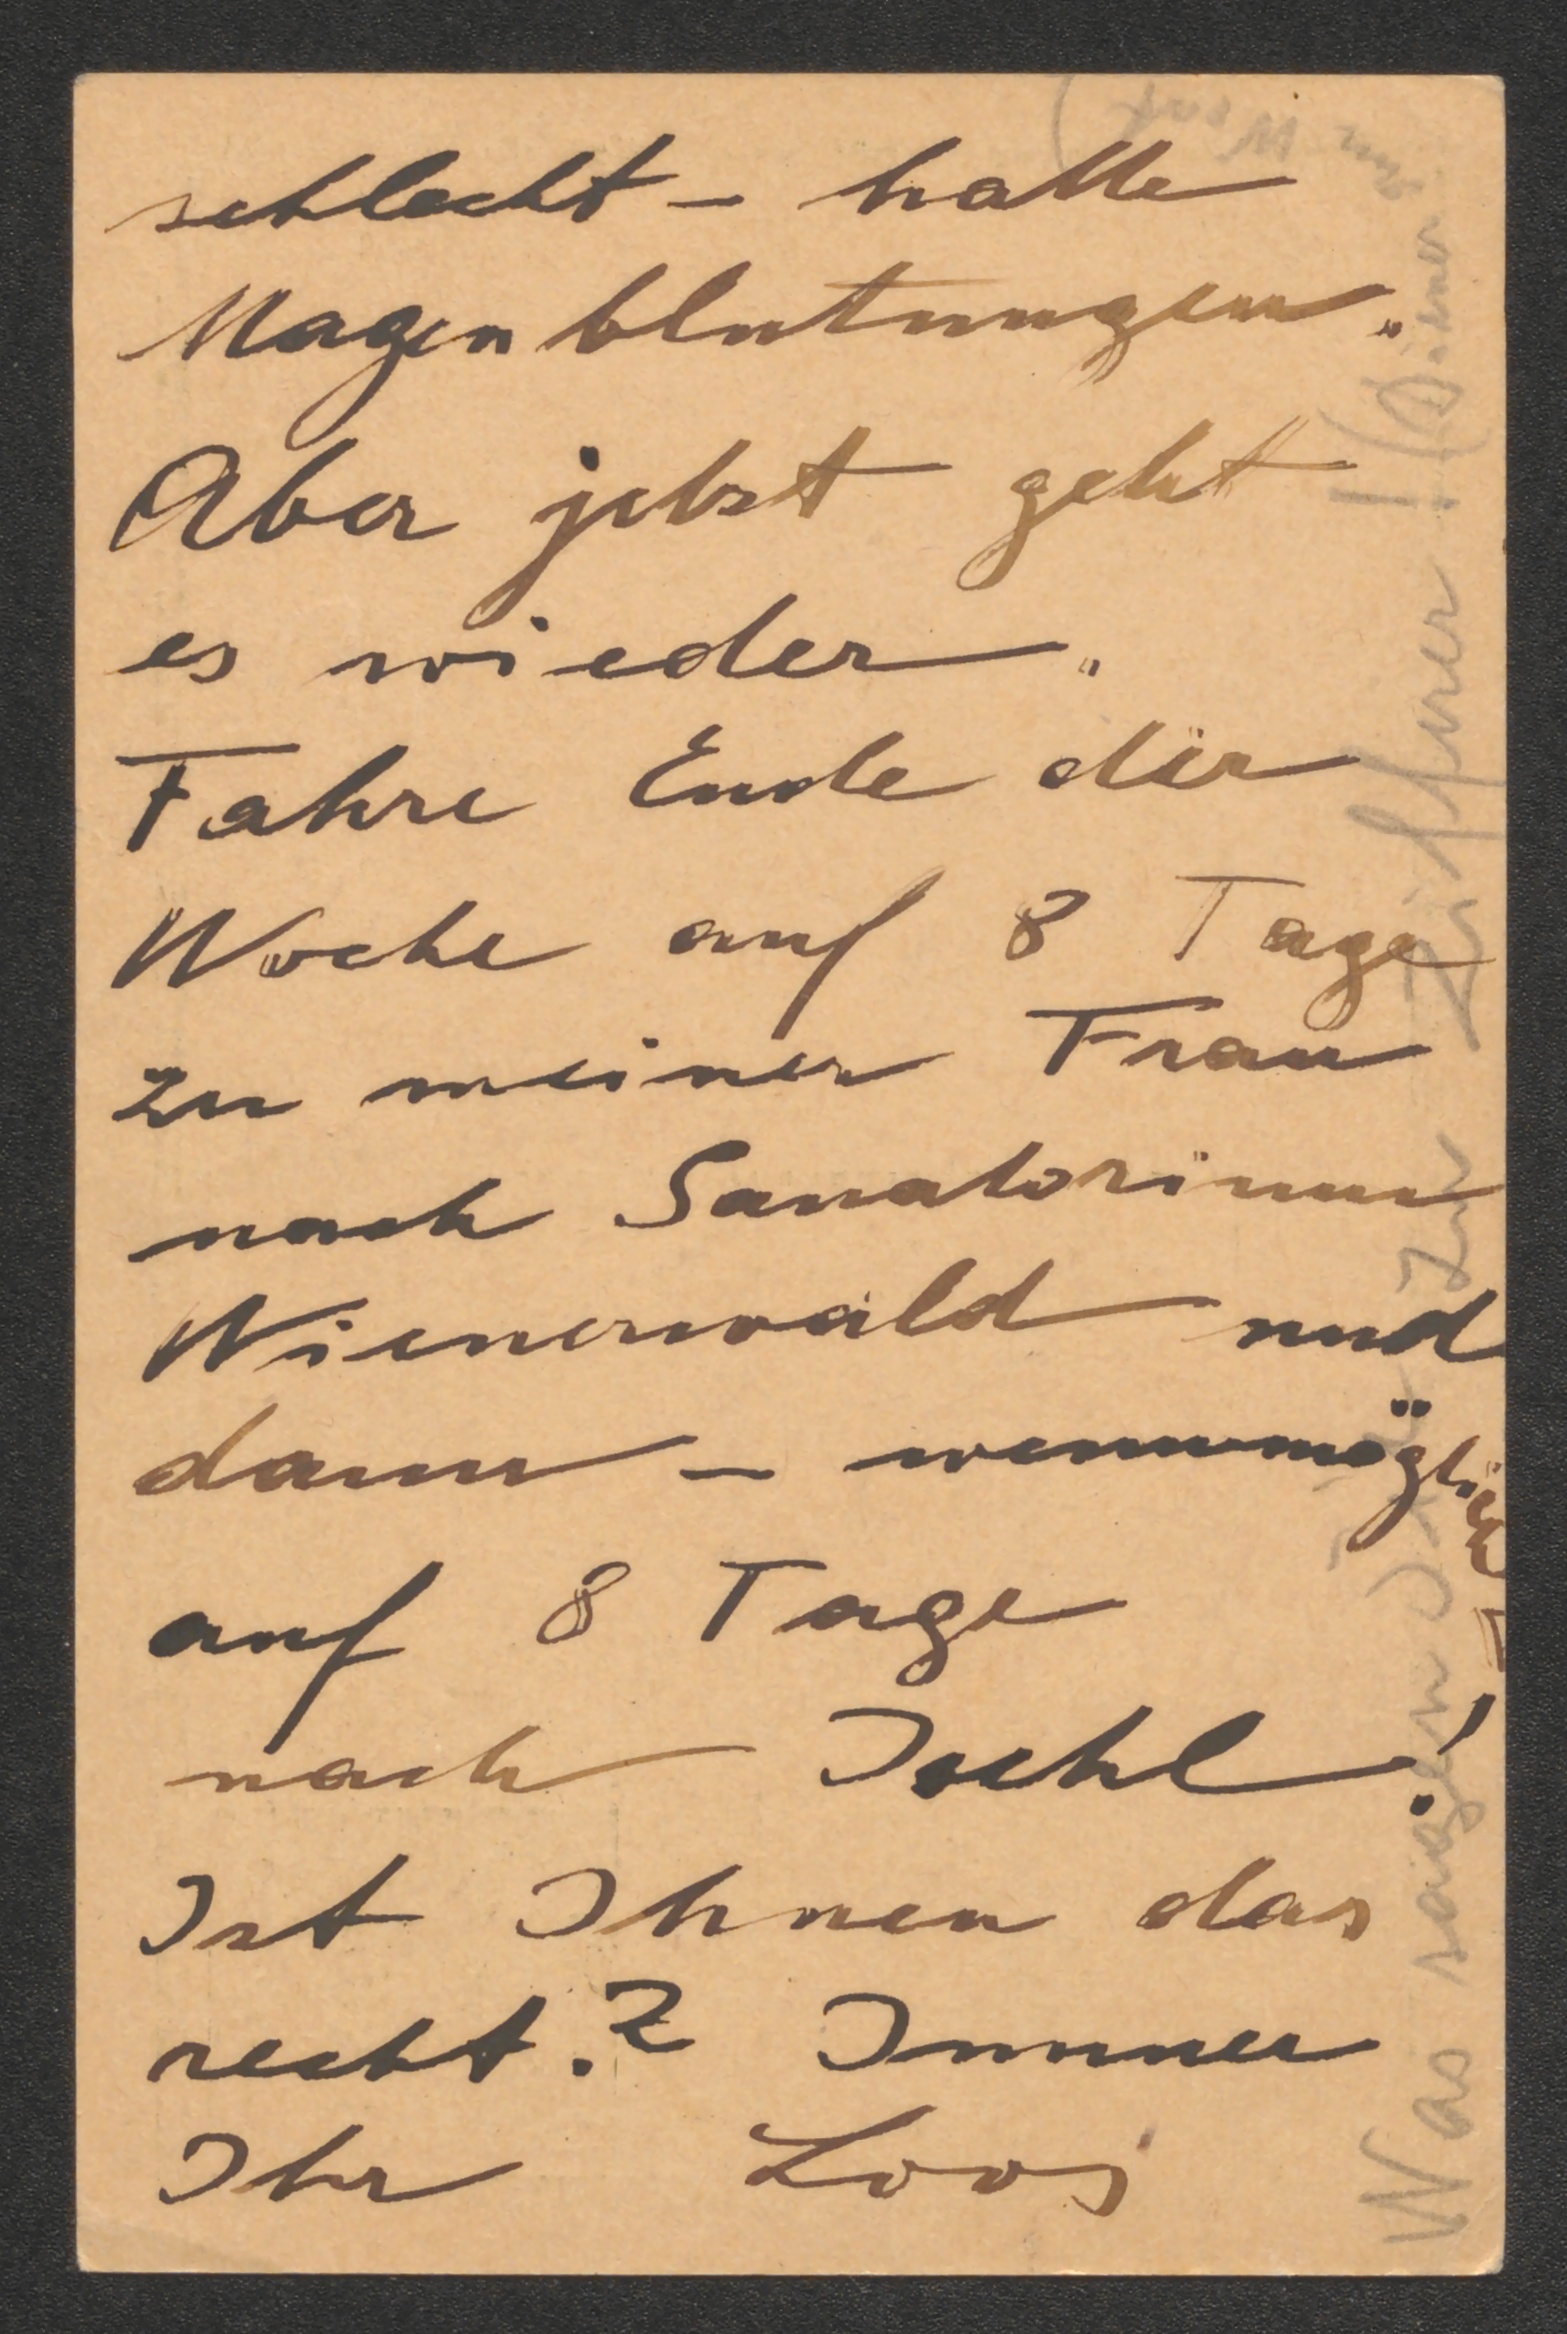 schlecht – hatte
Magenblutungen.
Aber jetzt geht
es wieder.
Fahre Ende der
Woche auf 8 Tage
zu meiner Frau
nach Sanatorium
Wienerwald und
dann – wennmöglich
auf 8 Tage
nach Ischl!
Ist Ihnen das
recht? Immer
Ihr Loos
Was sagen Sie zu Zifferer! (Diener